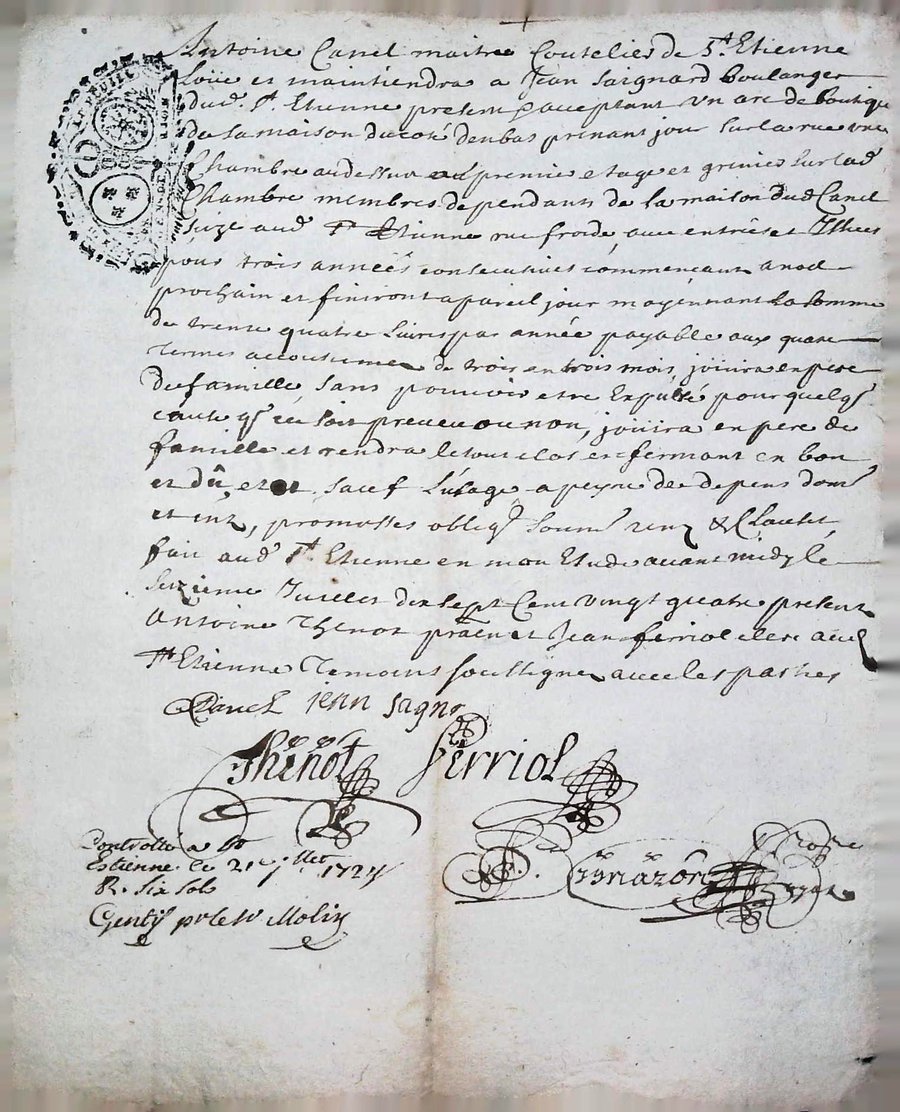 Antoine Canel maitre Coutelier de St. Etienne
Loüe et maintiendra a Jean Saignard Boulanger
dud. St. Etienne present & acceptant un arc de boutique
de sa maison du coté denbas prenant jour sur la rue une
Chambre au dessus au premier etage et grenier sur lad
Chambre membres dependants de la maison dud Canel
size aud St Etienne rue froide, avec entrées et
pour trois anneés consecutives commencant a noel
prochain et finiront a pareil jour moyennant la somme
de trente quatre Livres par année payable aux quatre
termes accoutumes de trois en trois mois, joüira en pere
de famille, sans pouvoir etre Expulsé pour quelq
cause q ce soit preveue ou non, joüira en pere de
famille et rendra le tout clos et fermant en bon
et dû, etat, sauf l'usage a peyne de depens dom
et int, promesses obligᵒ soum renᵒ & Clauses,
fait aud St Etienne en mon Etude avant midy le
seizieme Juillet dix sept Cent vingt quatre present
Antoine Thenot praen et Jean ferriol clerc aud
St Etienne temoins soussignes avec les parties
Canel jean sagnr
Thénot ferriol
Controllé a St
Estienne le 21e jllet 1724
R. six sols
Genty pr le Sr Molin